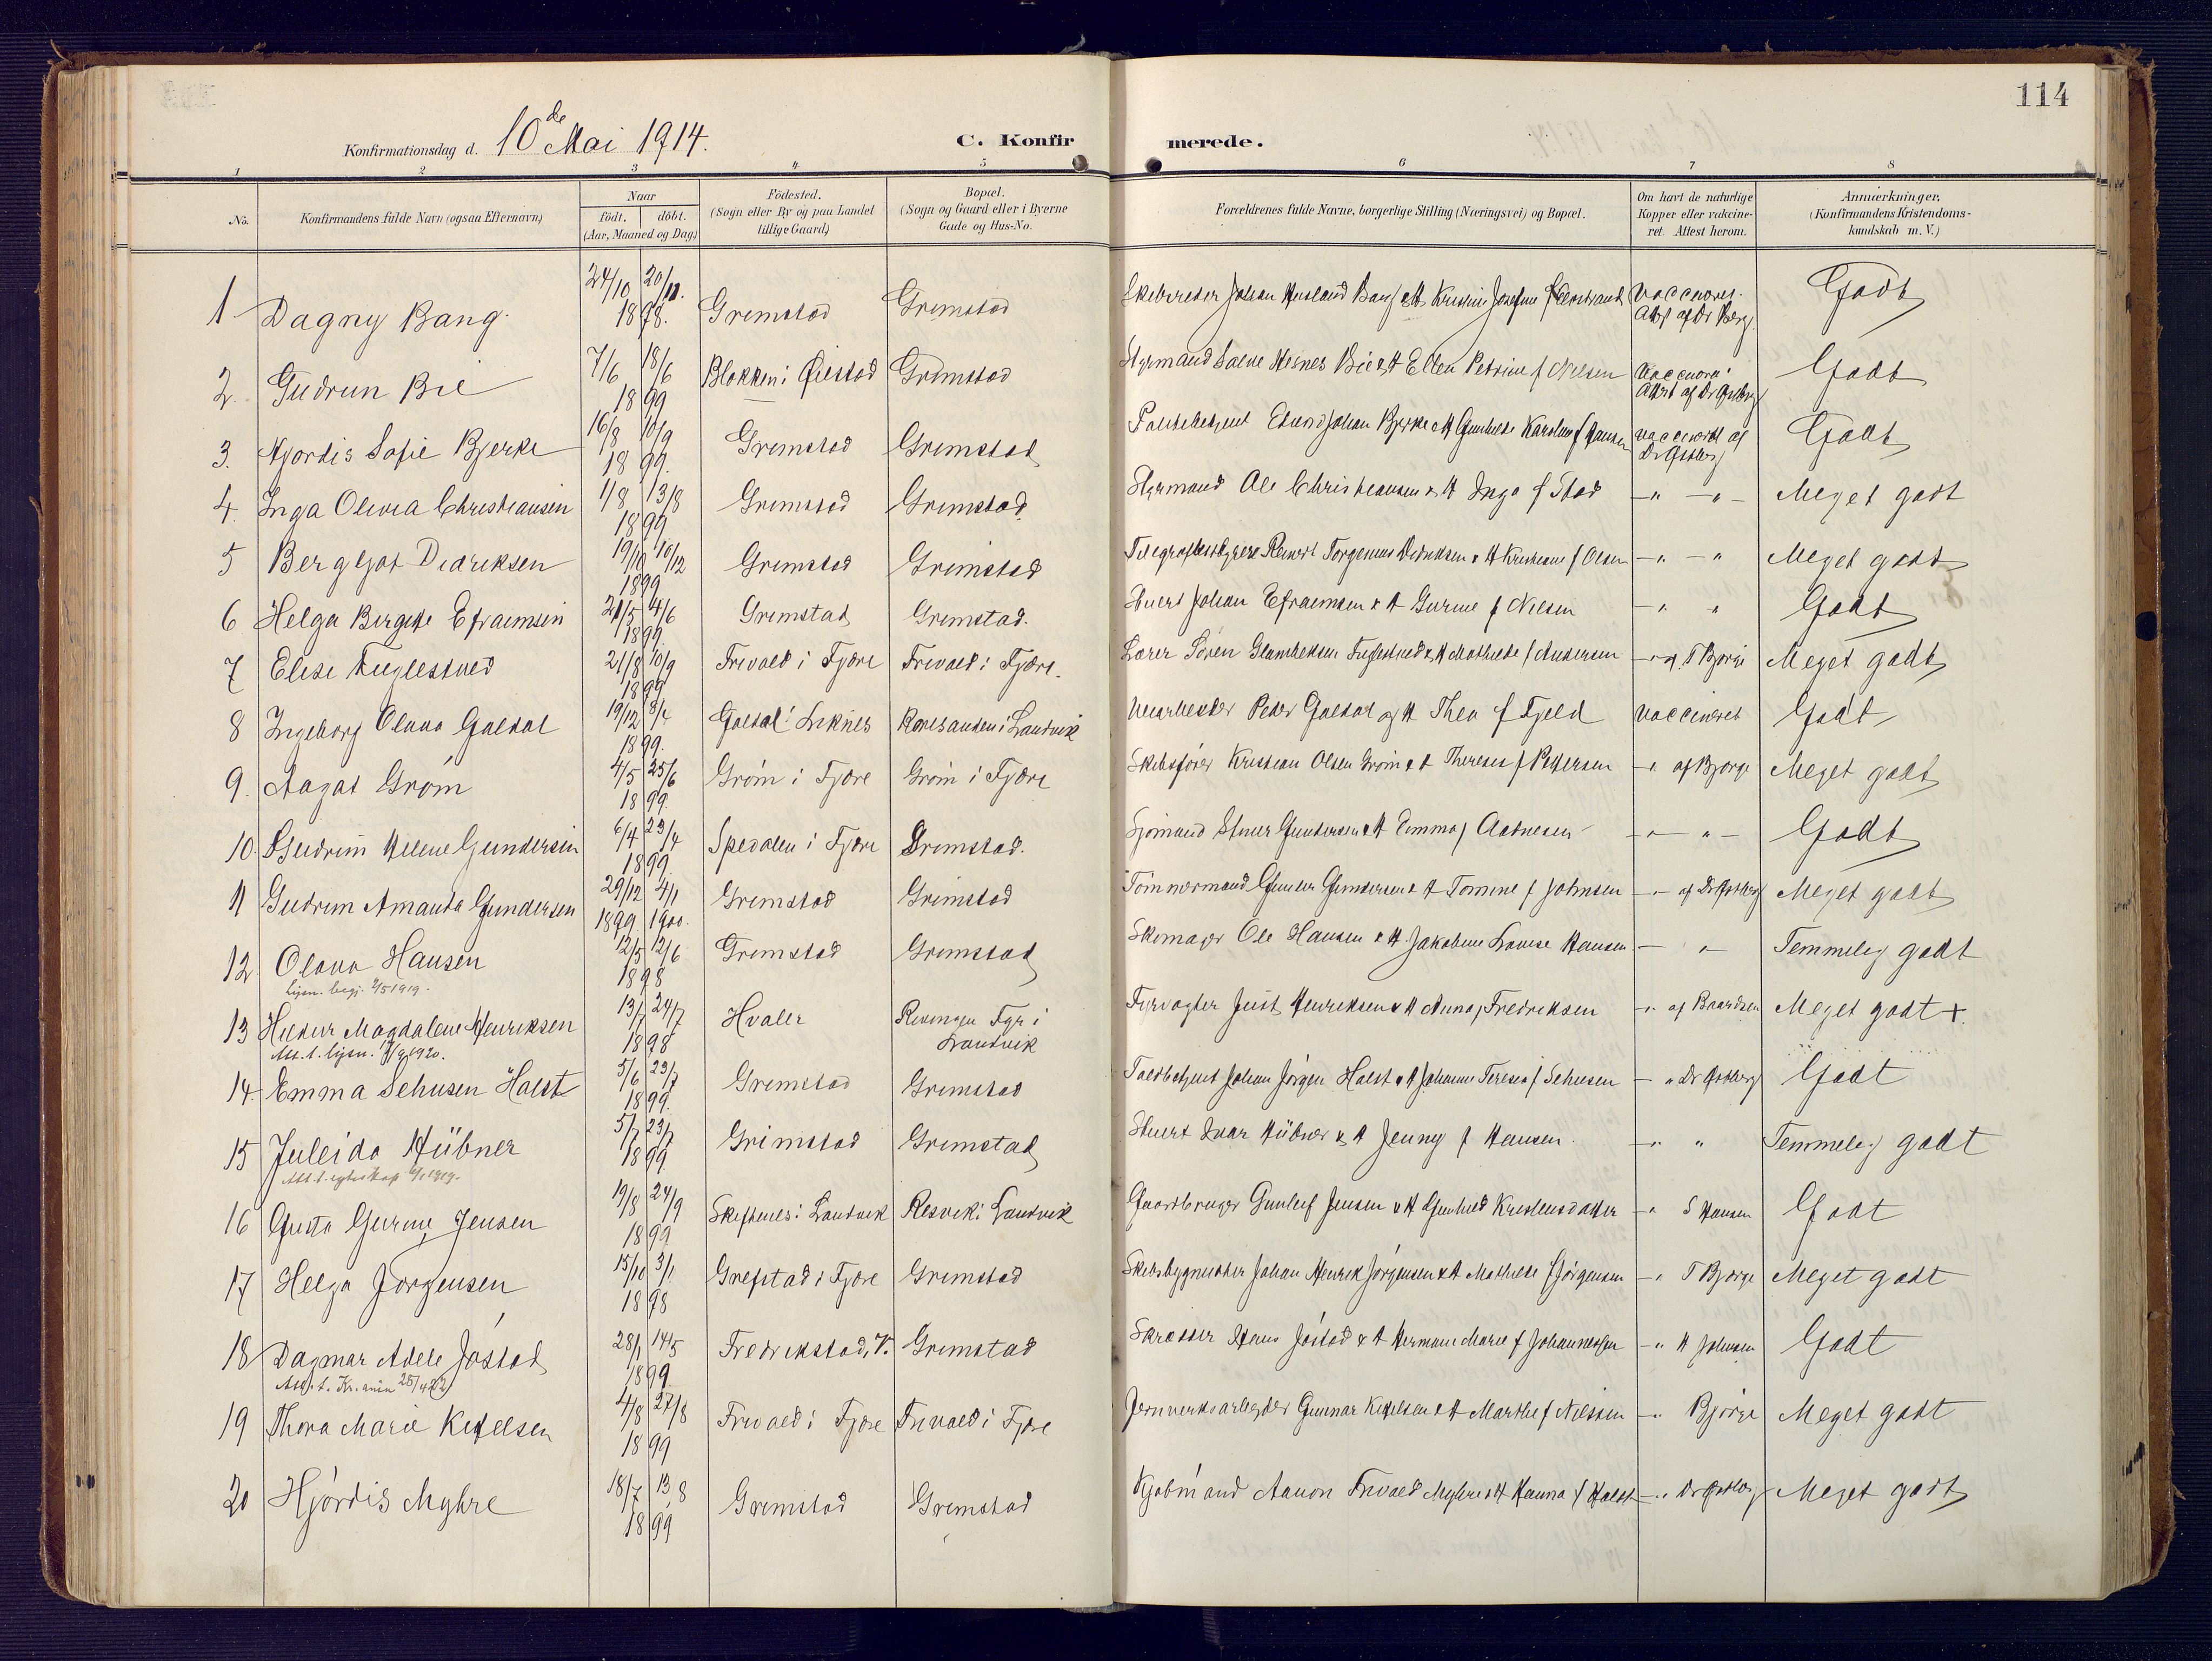 114
Konfirmationsdag d. 10de Mai 1914.
C. Konfirmerede.
1 2 3 4 5 6 7 8
No. Konfirmandens fulde Navn (ogsaa Efternavn) Naar født. døbt. (Aar, Maaned og Dag.) Födested. (Sogn eller By og paa Landet tillige Gaard) Bopæl. (Sogn og Gaard eller i Byerne Gade og Hus-No. Forældrenes fulde Navne, borgerlige Stilling (Næringsvei) og Bopæl. Om havt de naturlige Kopper eller vakcineret. Attest herom. Anmærkninger. (Konfirmandens Kristendomskundskab m. V.)
1 Dagny Bang 24/10 20/11. 1898. Grimstad Grimstad Skibsreder Johan Bang & H Kristine Josefine Vaccineret. Att af Dr Berg. Godt
2. Gudrun Bie 7/6 18/6 1899 Blokken i Øiestad Grimstad Styrmand Salve Hesnes Bie & H Ellen Petrine f Nielsen Attest af Dr Godt
3. Hjordis Sofie Bjerke 16/8 10/9 1899. Grimstad Grimstad Politibetjent Johan Bjerke & H Gunhilde Karoline f Hansen vaccineret af Dr Godt
4. Inga Olivia Christiansen 1/8 13/8 1899 Grimstad Grimstad Styrmand Ole Christiansen & H Inga f Stad — " — " — Meget godt
5 Bergljot Didriksen 19/10 10/12 1899 Grimstad Grimstad Telegrafbestyrere Reinert Torgenius Didriksen & H Kristiane f Olsen — " — " Meget godt
6 Helga Bergitte Efraimsen 21/5 4/6 1899. Grimstad Grimstad. Stuert Johan Efraimsen & H Gurine f Nilsen — " " Godt
7 Elise Fuglestved 21/8 10/9 1899 Frivold i Fjære Frivold i Fjære. Lærer Søren Fuglestved & H Mathilde f Andersen — " af T Bjorge Meget godt
8 Ingeborg Olava Galdal 19/12 1899. Galdal i Liknes Landvik Veiarbeider Peder Galdal og H Thea f Fjeld Vaccineret Godt
9. Aagot Grøm 4/5 25/6 1899. Grøm i Fjære Grøm i Fjære Skibsfører Kristian Olsen Grøm & H Therese f Pettersen — " af Bjorge Meget godt
10. Gudrun Helene Gundersen 6/4 23/4 1899 Spedalen i Fjære Grimstad. Sjømand Gundersen & H Emma f — " — Godt
11 Gudrun Amanda Gundersen 29/12 4/1 1899 1900. Grimstad Grimstad Tømmermand Gunder Gundersen & H Tomine f Johnsen — " af Dr Meget godt
12 Olava Hansen 12/5 12/6 1898 Grimstad Grimstad Skomager Ole Hansen & H. Jakobine Lovise Hansen — " — Temmelig godt
Lysn. begj. 2/5 1919.
13 Magdalene Henriksen 13/7 24/7 1898 Hvaler Rivingen Fyr i Landvik Fyrvogter Just Henriksen & H Anna f Fredriksen — " af Baardsen Meget godt +.
Att. t. lysn. 1920.
14. Emma Sehusen Holst 5/6 23/7 1899. Grimstad Grimstad Toldbetjent Johan Jørgen Holst & H Johanne Teresia f Sehusen — " Dr Godt
15 Juleida Hübner 5/7 23/7 1899 Grimstad Grimstad Stuert Ivar Hübner & H Jenny f Hansen. — " " Temmelig godt
Att. t. egteskap 1919.
16 Gusta Gurine Jensen 19/8 24/9 1899 Skiftenes i Landvik Resvik i Landvik Gaardbruger Gunleif Jensen & H Gunhild Kristensdatter — " S Hansen Godt
17 Helga Jørgensen 15/10 3/1. 1898 Grefstad i Fjære Grimstad Skibsbygmester Johan Henrik Jørgensen & H Mathilde f Jørgensen — " T Bjorge Meget godt
18 Dagmar Adele Jøstad 28/1 14/5 1899 Fredrikstad, V. Grimstad Skrædder Hans Jøstad & H Hermane Marie f Johannessen — " H Johnsen Godt
Att. t. Kr. ania 25/4 22
19 Thora Marie Ketelsen 4/8 27/8 1899 Frivold i Fjære Frivold i Fjære Jernverksarbeider Gunnar Ketelsen & H Marthe f Nilssen — " Bjørge Meget godt
20 Hjørdis Myhre 18/7 13/8 1899 Grimstad Grimstad Kjøbmand Aanon Frivold Myhre & H Hanna f Holst — " Dr Meget godt